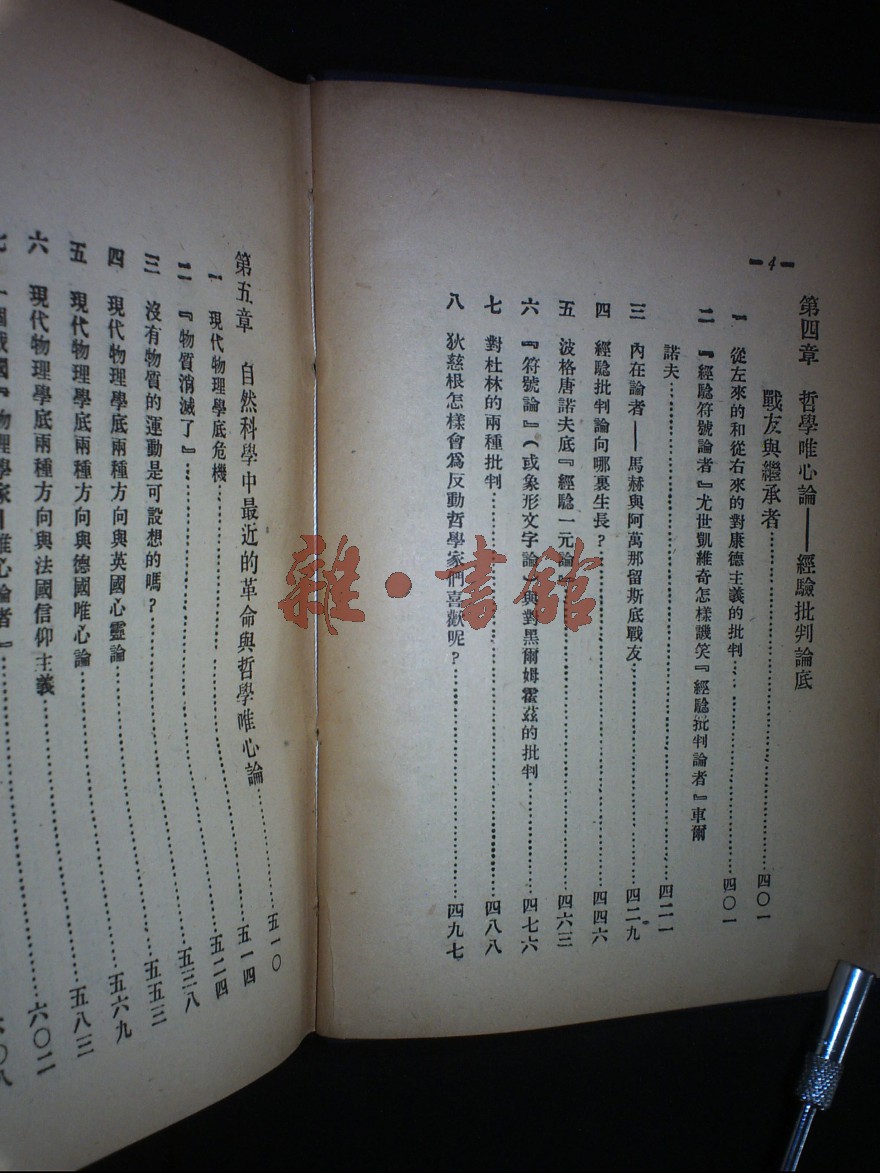 —4—
第四章　哲學唯心論——經驗批判論底
戰友與繼承者……四〇一
一　從左來的和從右來的對康德主義的批判……四〇一
二　『經驗符號論者』尤世凱維奇怎樣譏笑『經驗批判論者』車爾
諾夫……四二一
三　內在論者——馬赫與阿萬那留斯底戰友……四二九
四　經驗批判論向哪裏生長？……四四六
五　波格唐諾夫底『經驗一元論』……四六三
六　『符號論』（或象形文字論）與對黑爾姆霍茲的批判……四七六
七　對杜林的兩種批判……四八八
八　狄慈根怎樣會爲反動哲學家們喜歡呢？……四九七
第五章　自然科學中最近的革命與哲學唯心論……五一〇
一　現代物理學底危機……五一四
二　『物質消滅了』……五二四
三　沒有物質的運動是可設想的嗎？……五三八
四　現代物理學底兩種方向與英國心靈論……五五三
五　現代物理學底兩種方向與德國唯心論……五六九
六　現代物理學底兩種方向與法國信仰主義……五八三
七　一個俄國『物理學家唯心論者』……六〇二
六〇八
雜·書館